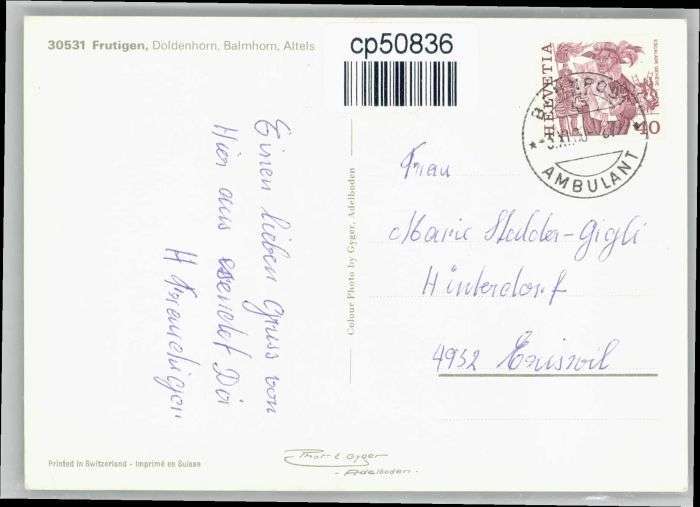 30531 Frutigen, Doldenhorn, Balmhorn, Altels
cp50836
HELVETIA
40
BAHNPOST
AMBULANT
Einen lieben Gruss von
Hier aus sendet Dir
H
Colour Photo by Gyger, Adelboden
Frau
Marie Stalder-Gigli
Hinterdorf
4932
Printed in Switzerland - Imprimé en Suisse
Photo E Gyger
- Adelboden -